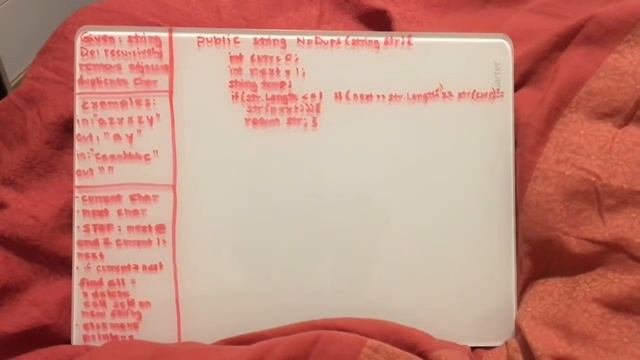 Given: string
Do: recursively
remove adjacent
duplicate char
Examples:
in: "azxxzy"
out: "ay"
in:
out ""
· current char
· next char
· STOP: next @
end & current !=
next
· if current = next
find all =
delete
call self on
new string
else move
pointers
public string NoDups(string str){
int curr = 0;
int next = 1;
string temp;
if(str.Length <=1 || (next == str.Length && str[curr] !=
str[next])){
return str; }